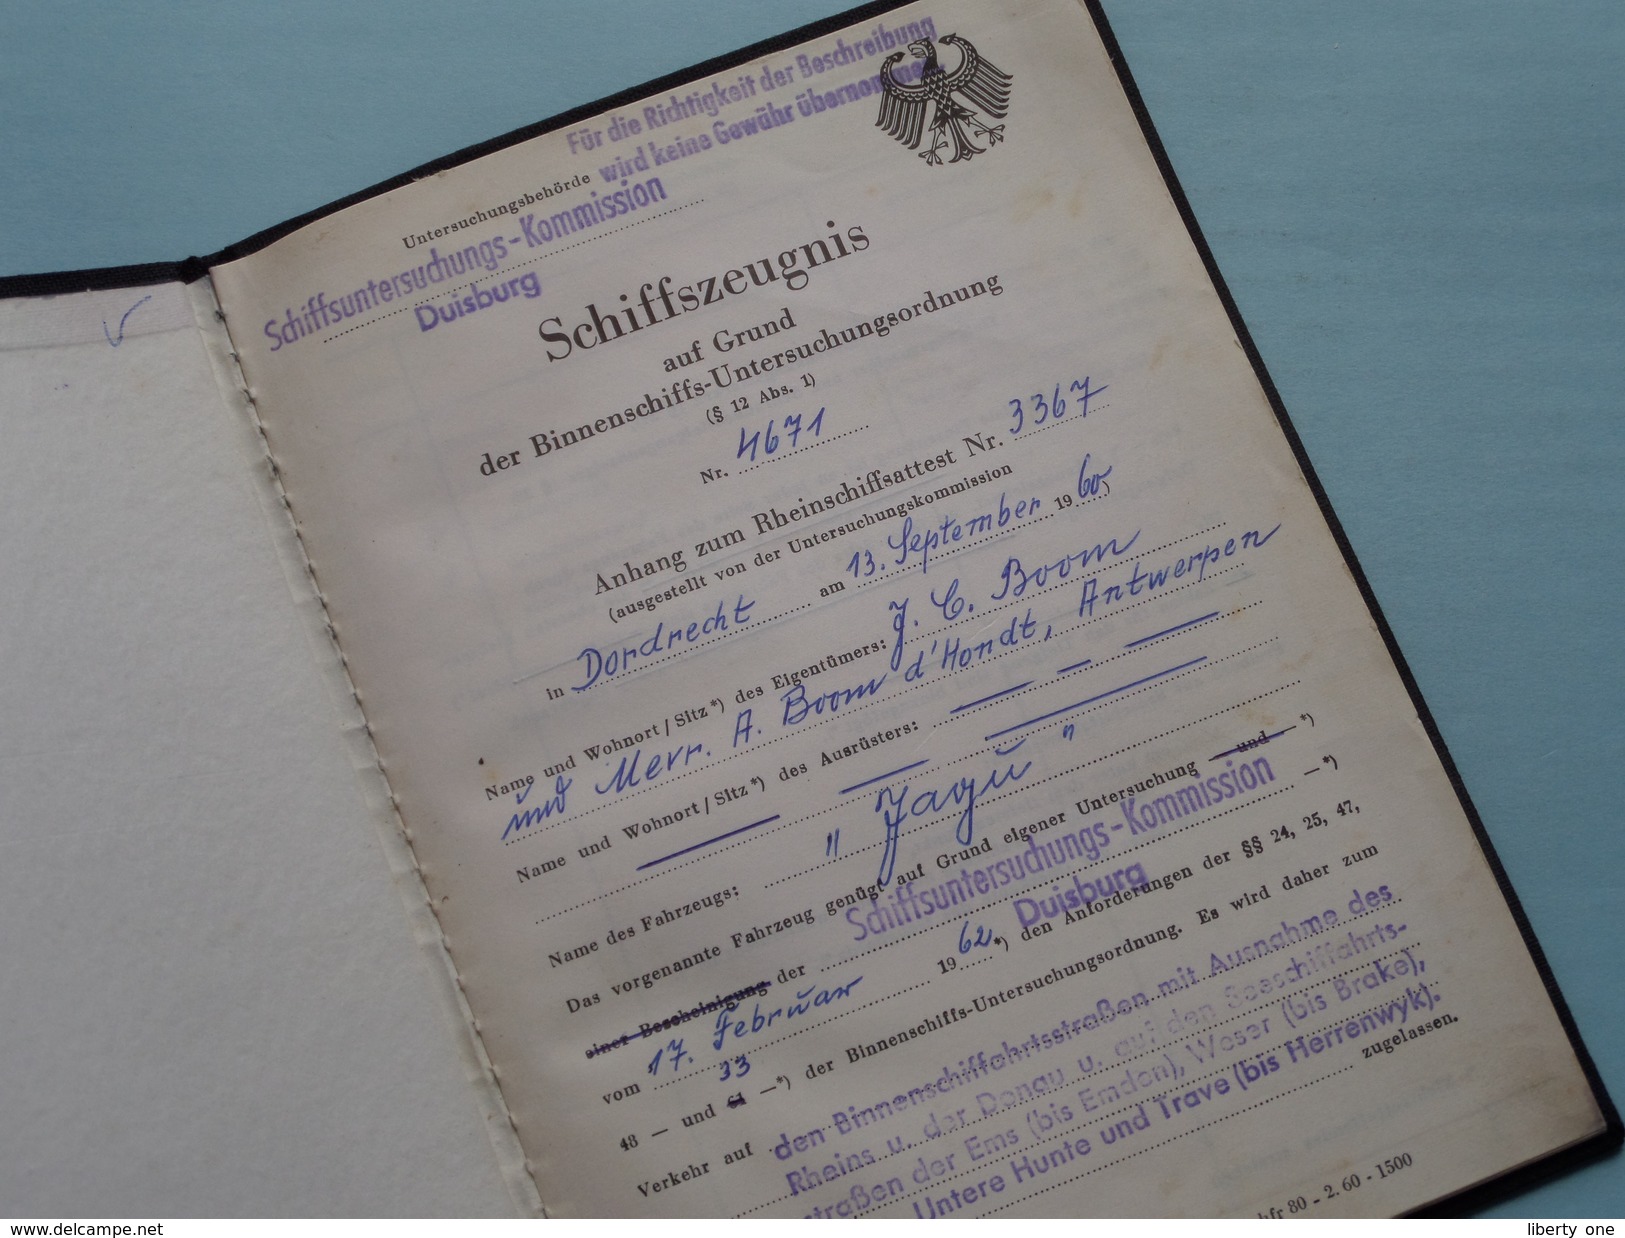 Für die Richtigkeit der Beschreibung
wird keine Gewähr übernommen.
Untersuchungsbehörde
Schiffsuntersuchungs-Kommission
Duisburg
Schiffszeugnis
auf Grund
der Binnenschiffs-Untersuchungsordnung
(§ 12 Abs. 1)
Nr. 4671
Anhang zum Rheinschiffsattest Nr. 3367
(ausgestellt von der Untersuchungskommission
in Dordrecht am 13. September 1960)
Name und Wohnort/Sitz*) des Eigentümers: J. C. Boom
und Mevr. A. Boom d'Hondt, Antwerpen
Name und Wohnort/Sitz*) des Ausrüsters: — — —
Name des Fahrzeugs: " Jagu "
Das vorgenannte Fahrzeug genügt auf Grund eigener Untersuchung — und — *)
einer Bescheinigung der Schiffsuntersuchungs-Kommission —*)
Duisburg
vom 17. Februar 1962 *) den Anforderungen der §§ 24, 25, 47,
33
48 — und 61 —*) der Binnenschiffs-Untersuchungsordnung. Es wird daher zum
Verkehr auf den Binnenschiffahrtsstraßen mit Ausnahme des
Rheins u. der Donau u. auf den Seeschiffahrts-
straßen der Ems (bis Emden), Weser (bis Brake),
Untere Hunte und Trave (bis Herrenwyk). zugelassen.
bfr 80 - 2. 60 - 1500
www.delcampe.net
liberty one